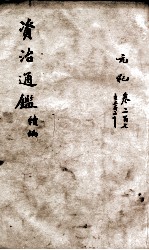 資治通鑑續編
元紀 卷二百七